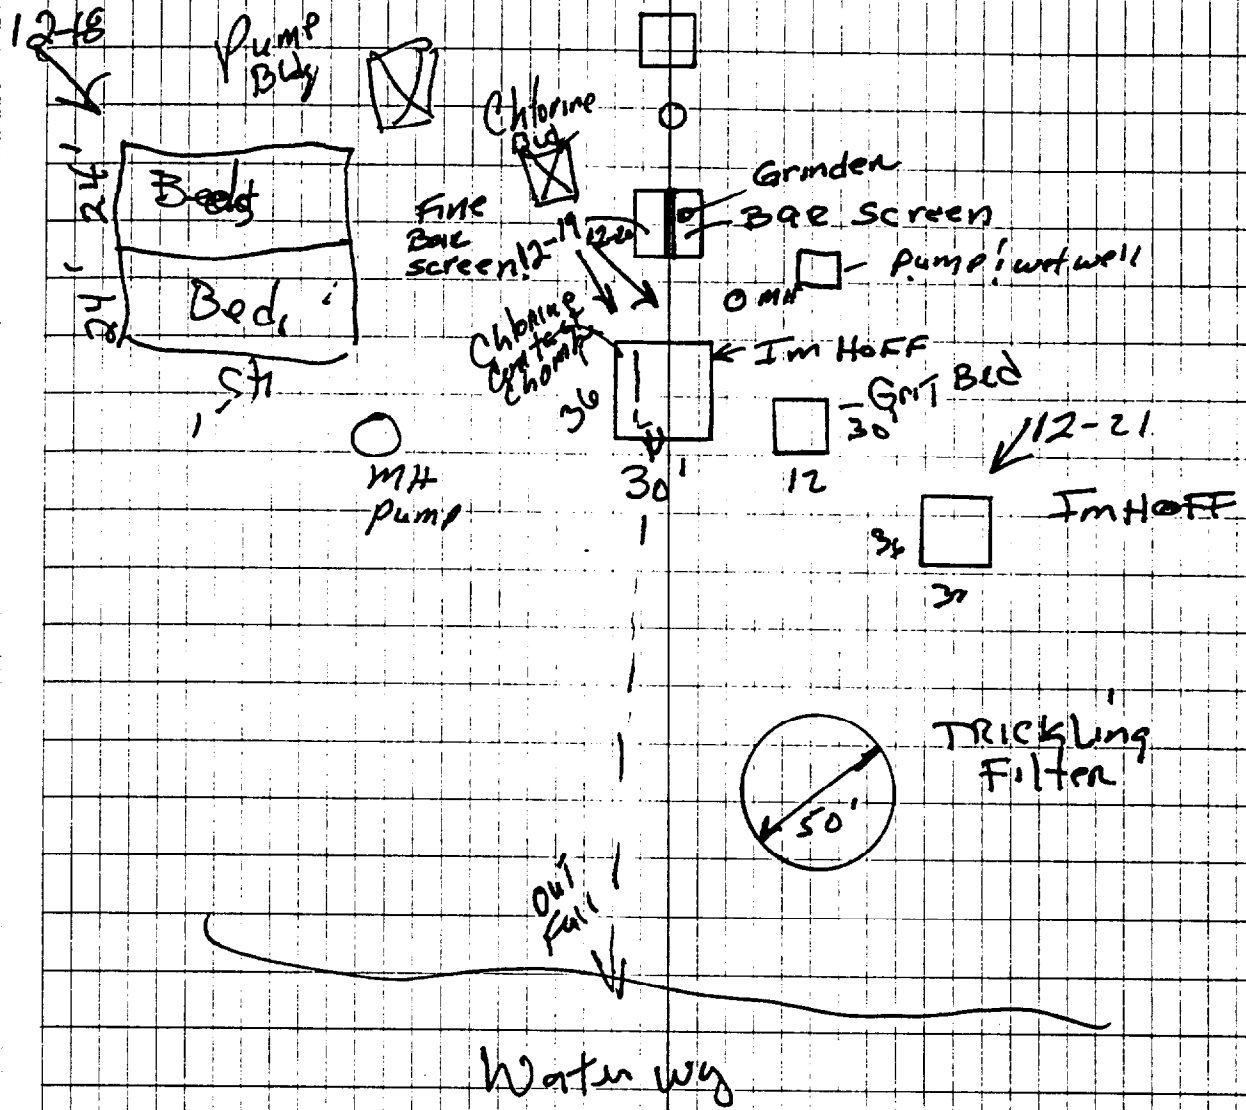 12-18
Pump
Bldg
Chlorine
Bld
24'
Beds
24'
Bed
45'
Fine
Bar
screen
12-19
12-20
Grinder
Bar Screen
Pump / wet well
MH
Chlorine
Contact
Chamb
ImHoFF
36
30'
Grit Bed
30'
12
12-21
ImHoFF
36
30
MH
Pump
TRICKLing
Filter
50'
Out
Fall
Water wy